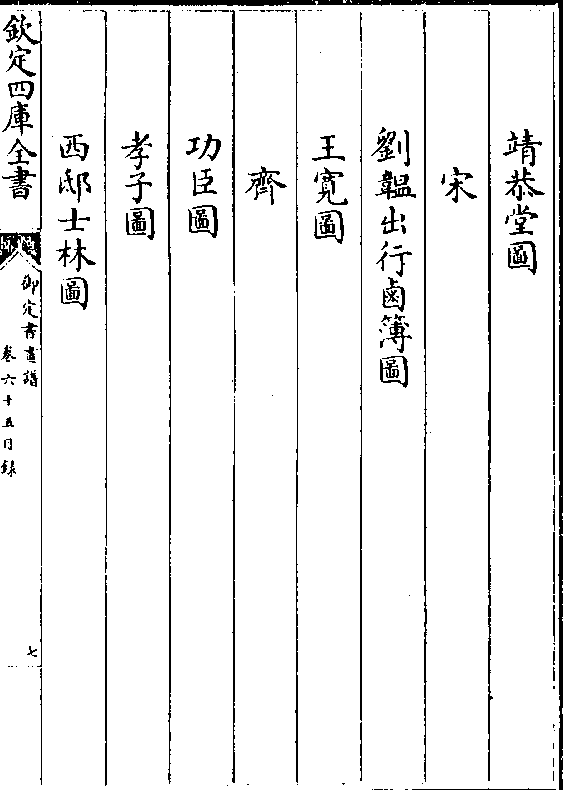 靖恭堂圖
宋
劉韞出行鹵簿圖
王寛圖
齊
功臣圖
孝子圖
西邸士林圖
欽定四庫全書
御定書畫譜
卷六十五目錄
七